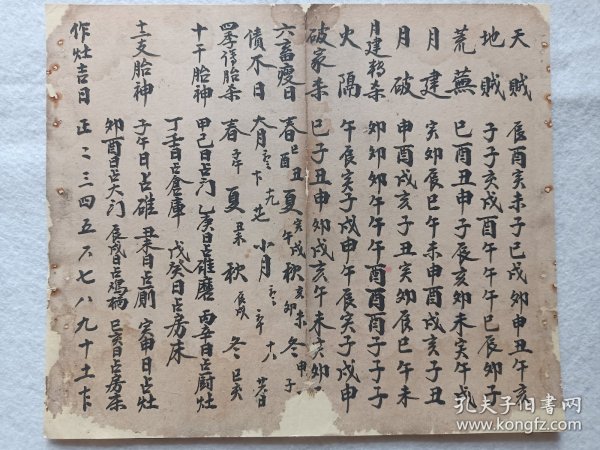 天賊 辰酉亥未子巳戌卯申丑午亥
地賊 子子亥戌酉午午午巳辰卯子
荒蕪 巳酉丑申子辰亥卯未寅午戌
月建 寅卯辰巳午未申酉戌亥子丑
月破 申酉戌亥子丑寅卯辰巳午未
月建轉杀 卯卯卯午午午酉酉酉子子子
火隔 午辰寅子戌申午辰寅子戌申
破家杀 巳子丑申卯戌亥午未寅卯
六畜瘦日 春巳酉丑 夏寅午戌 秋亥卯未 冬申子
債不日 大月 小月
四季淂胎杀 春 夏丑未 秋辰戌 冬巳亥
十干胎神 甲己日占门 乙庚日占碓磨 丙辛日占厨灶
丁壬日占倉庫 戊癸日占房床
十二支胎神 子午日占碓 丑未日占厠 寅申日占灶
卯酉日占大门 辰戌日占鸡栖 巳亥日占房床
作灶吉日 正二三四五六七八九十
孔夫子旧书网
www.kongfz.com